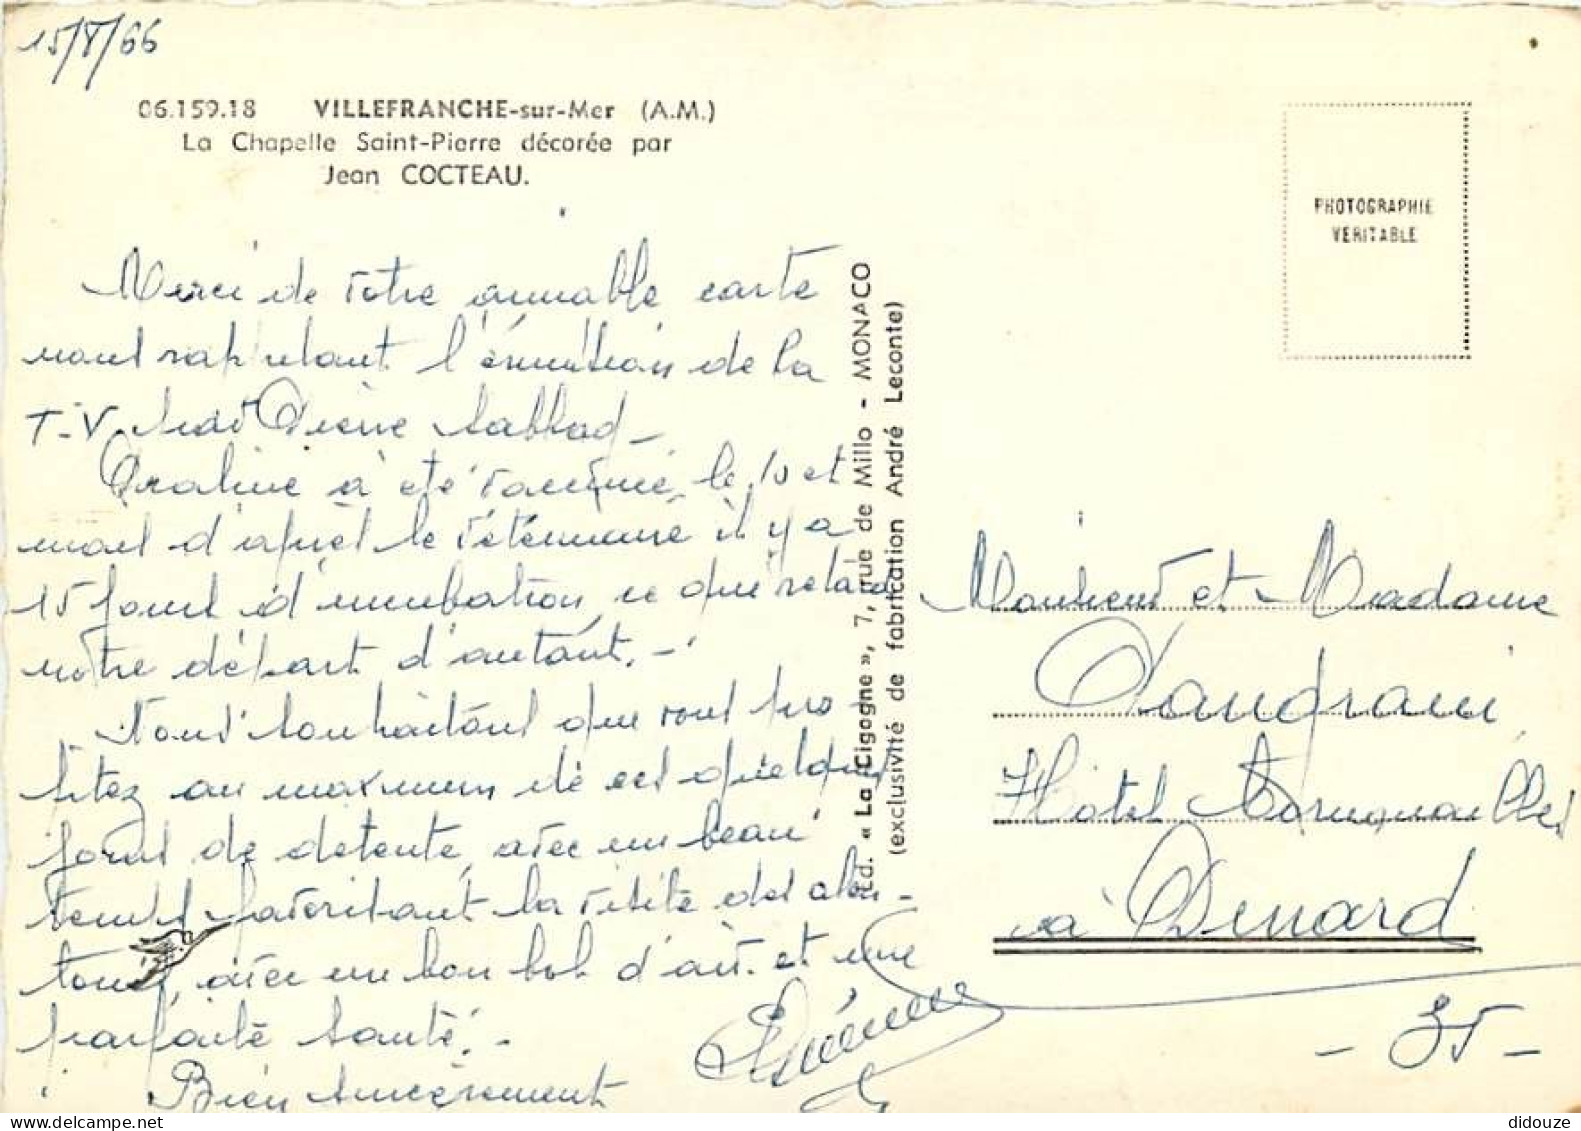 15/8/66
06.159.18 VILLEFRANCHE-sur-Mer (A.M.)
La Chapelle Saint-Pierre décorée par
Jean COCTEAU.
PHOTOGRAPHIE
VERITABLE
Merci de votre aimable carte
nous rappelant l'émission de la
T-V. sur Pierre Sabbag -
Praline a été vaccinée le 10 et
mais d'après le vétérinaire il y a
15 jours d'incubation, ce que retarde
notre départ d'autant. -
Nous souhaitons que vous pro
fitez au maximum de ces quelques
jours de détente, avec un beau
temps favorisant la visite des alen-
tours, avec un bon bol d'air et une
parfaite santé. -
Bien sincèrement
Ed. « La Cigogne », 7, rue de Millo - MONACO
(exclusivité de fabrication André Leconte)
Monsieur et Madame
Hôtel
à Dinard
- 35 -
didouze